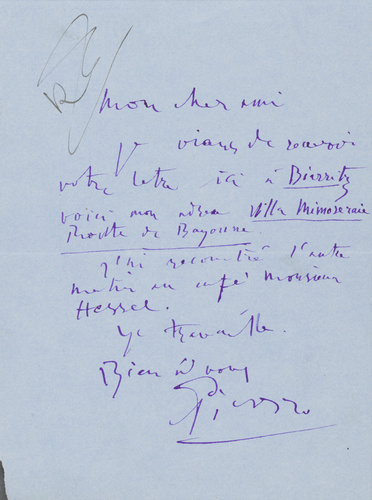 Mon cher ami
Je viens de recevoir
votre letre ici à Biarritz
voici mon adresse Villa Mimoseraie
Route de Bayonne.
J'ai recontré l'autre
matin au café Monsieur
Hessel.
Je travaille.
Bien à vous
Picasso